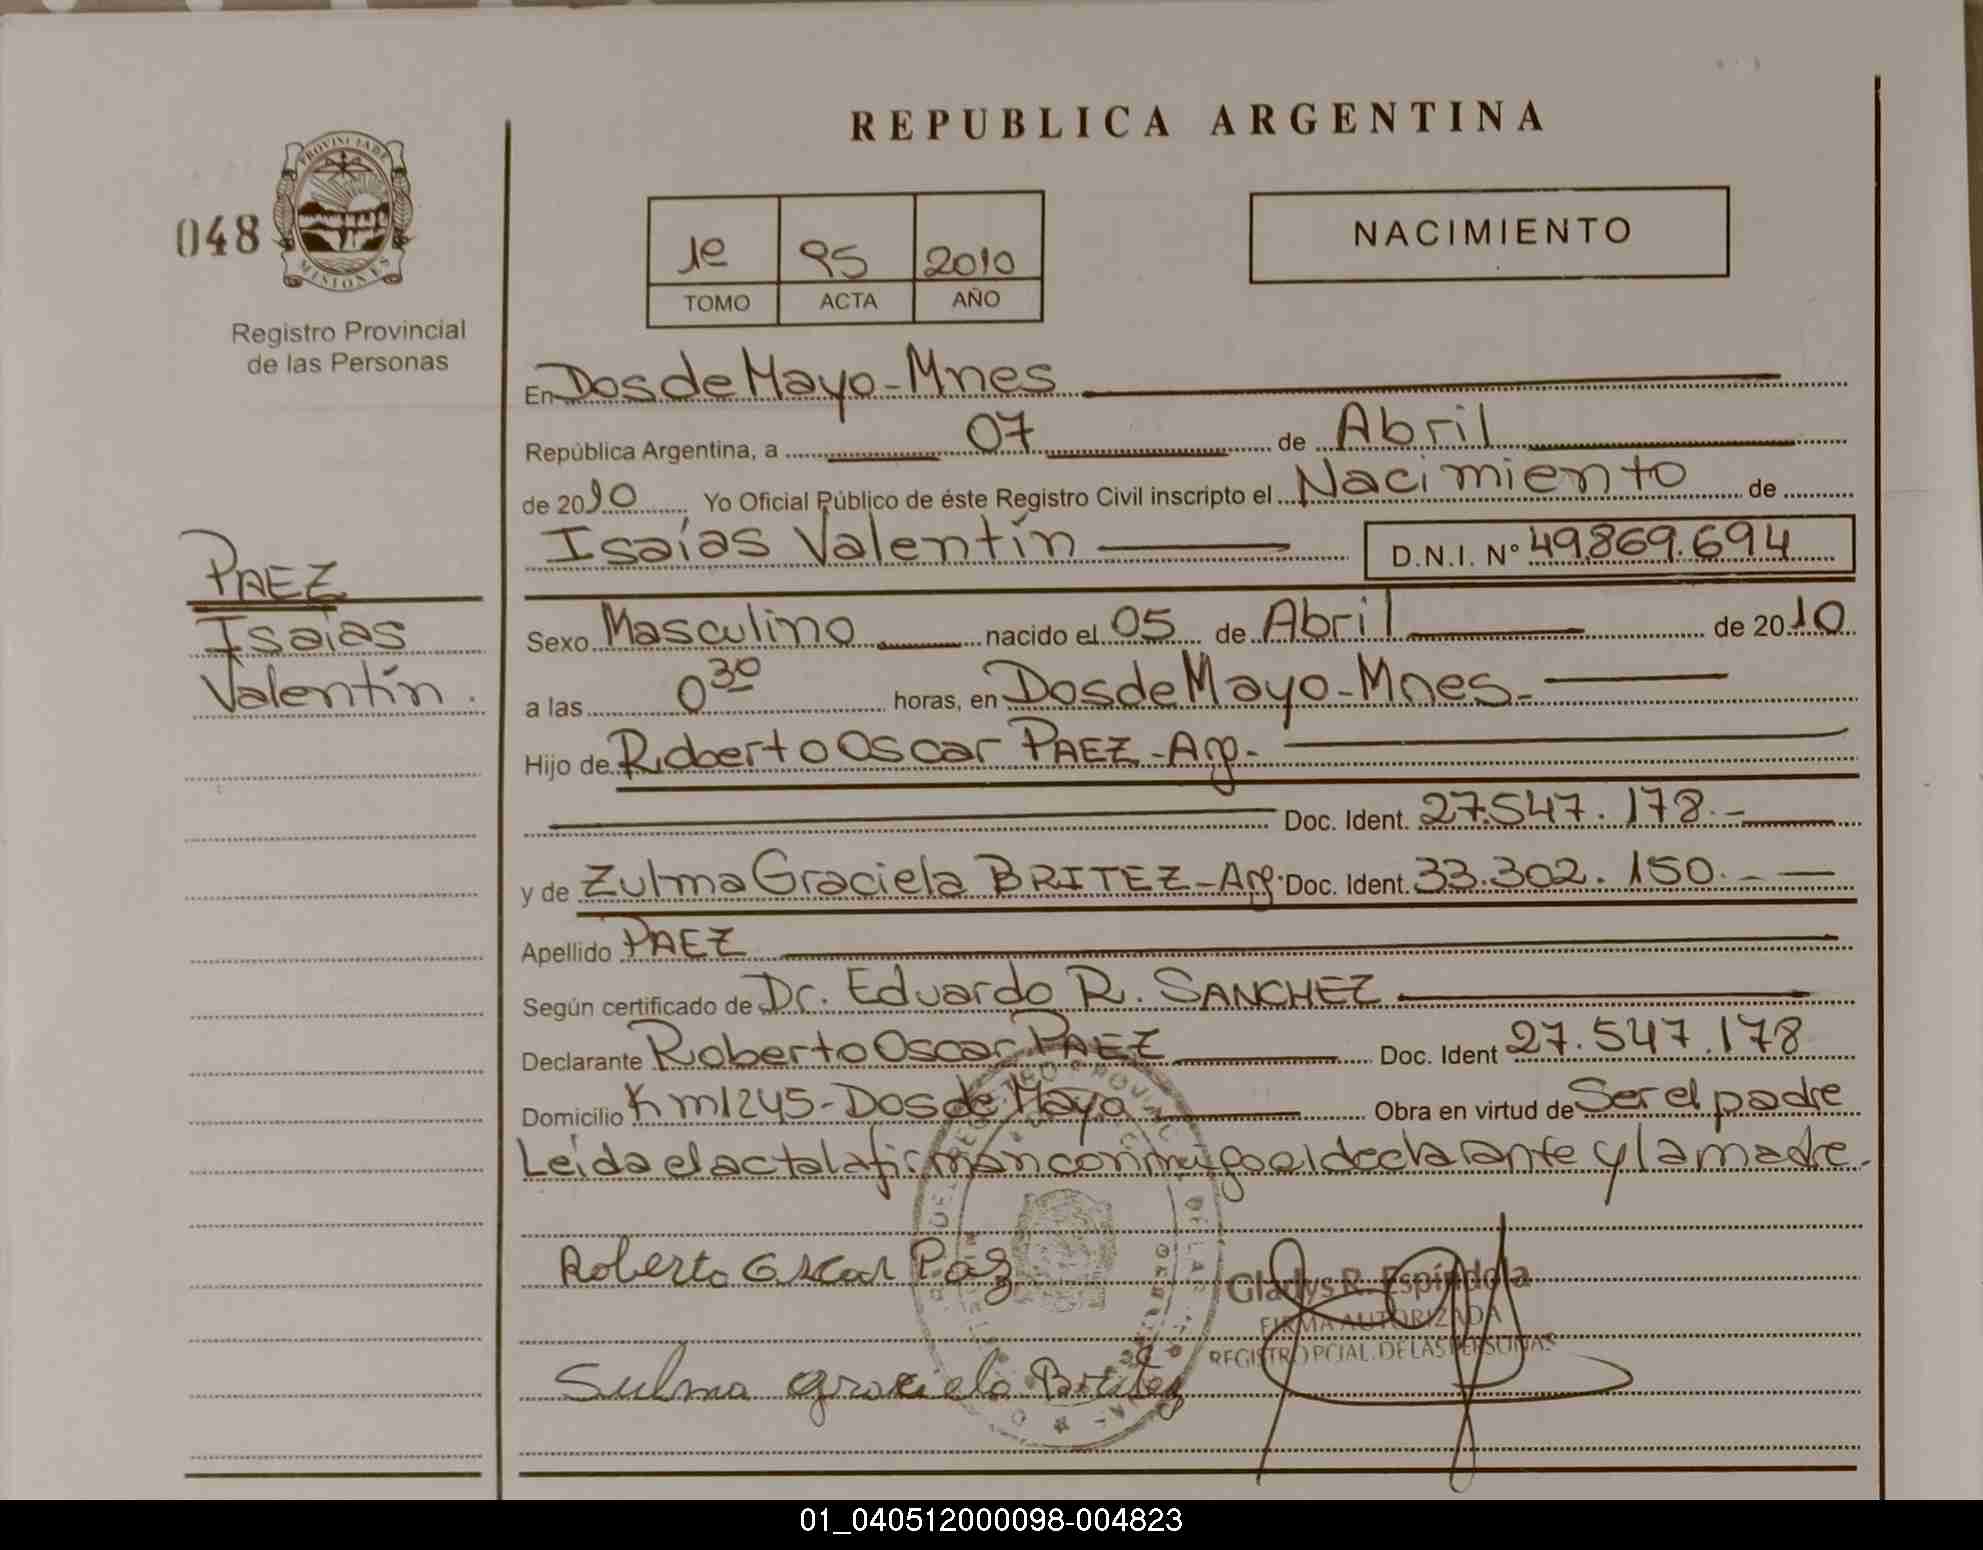 REPUBLICA ARGENTINA
PROVINCIA DE
MISIONES
048
Registro Provincial
de las Personas
1e 95 2010
TOMO ACTA AÑO
NACIMIENTO
PAEZ
Isaías
Valentín.
En Dos de Mayo - Mnes
República Argentina, a 07 de Abril
de 2010 Yo Oficial Público de éste Registro Civil inscripto el Nacimiento de
Isaías Valentín D.N.I. Nº 49.869.694
Sexo Masculino nacido el 05 de Abril de 2010
a las 0 30 horas, en Dos de Mayo - Mnes -
Hijo de Roberto Oscar PAEZ - Arg -
Doc. Ident. 27.547.178.-
y de Zulma Graciela BRITEZ - Arg. Doc. Ident. 33.302.150.-
Apellido PAEZ
Según certificado de Dr. Eduardo R. SANCHEZ
Declarante Roberto Oscar PAEZ Doc. Ident 27.547.178
Domicilio Km 1245 - Dos de Mayo Obra en virtud de Ser el padre
Leída el acta la firman conmigo el declarante y la madre.
Roberto Oscar Paz
Gladys R. Espíndola
FIRMA AUTORIZADA
REGISTRO PCIAL. DE LAS PERSONAS
Sulma graciela Britez
01_040512000098-004823